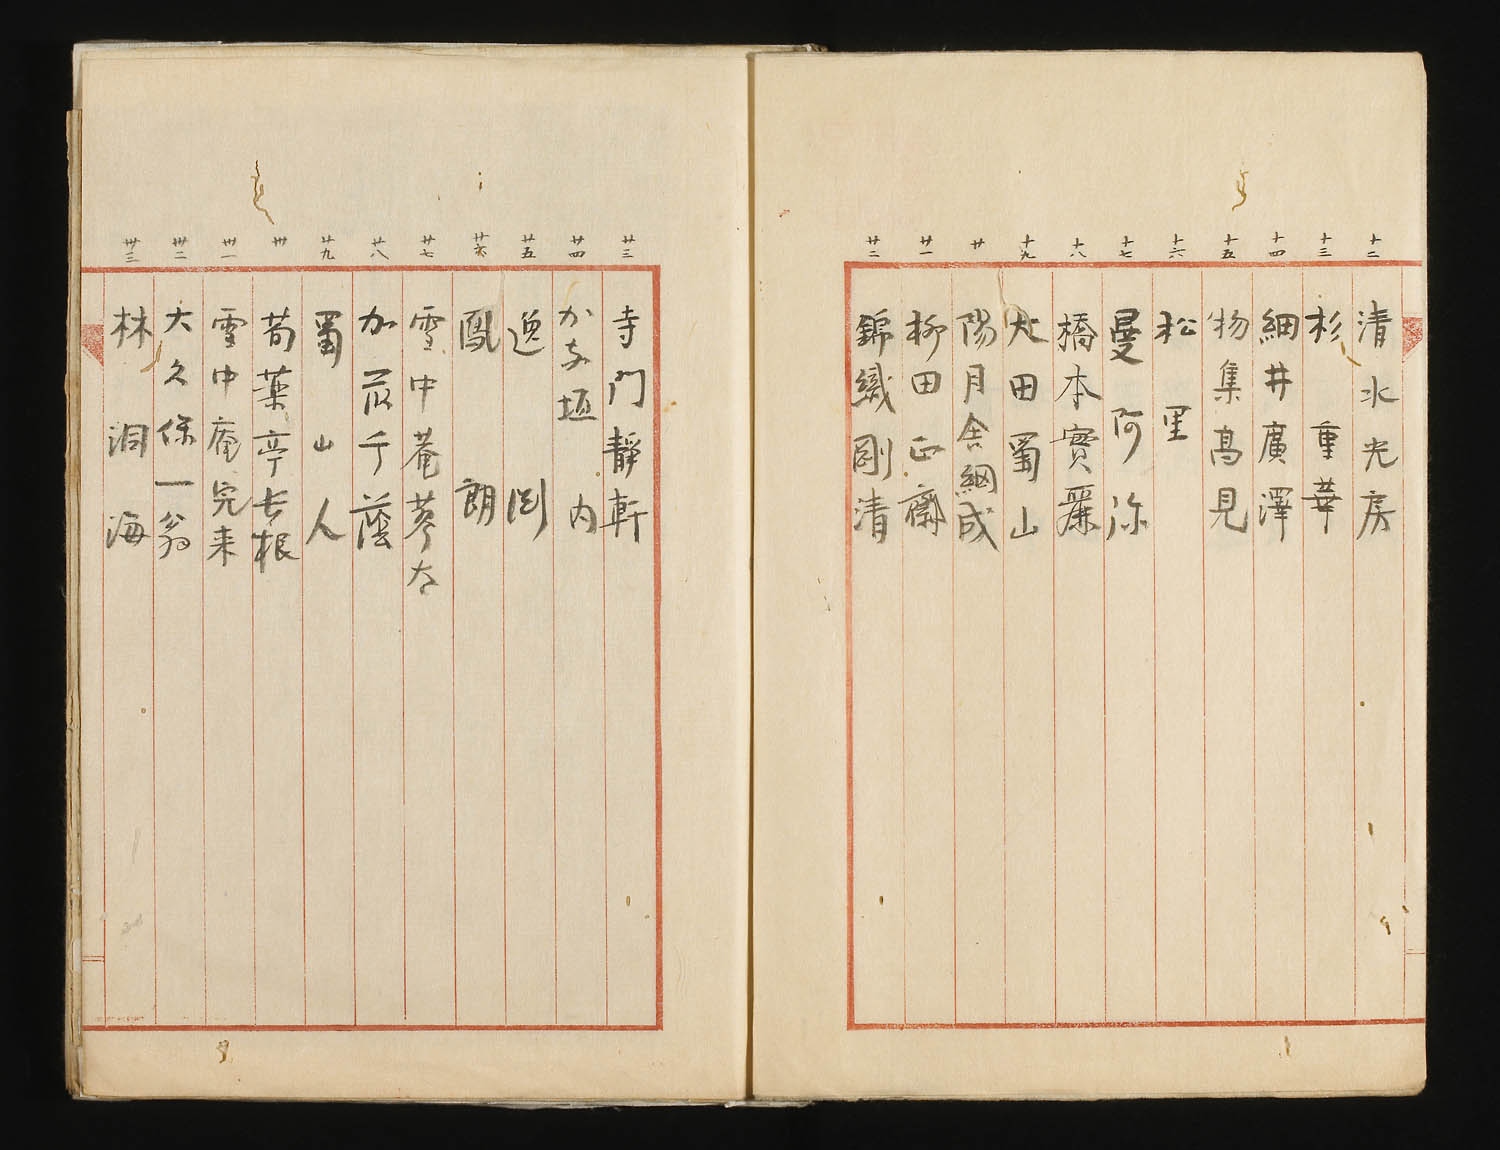 十二 清水光房
十三 杉重華
十四 細井廣澤
十五 物集高見
十六 松里
十七 曼阿弥
十八 橋本實麗
十九 大田蜀山
廿 陽月舎綱成
廿一 柳田正齋
廿二 錦織剛清
廿三 寺門静軒
廿四 かな垣内
廿五 逸渕
廿六 鳳朗
廿七 雪中菴蓼太
廿八 加茂千蔭
廿九 蜀山人
卅 芍薬亭長根
卅一 雪中庵完来
卅二 大久保一翁
卅三 林洞海